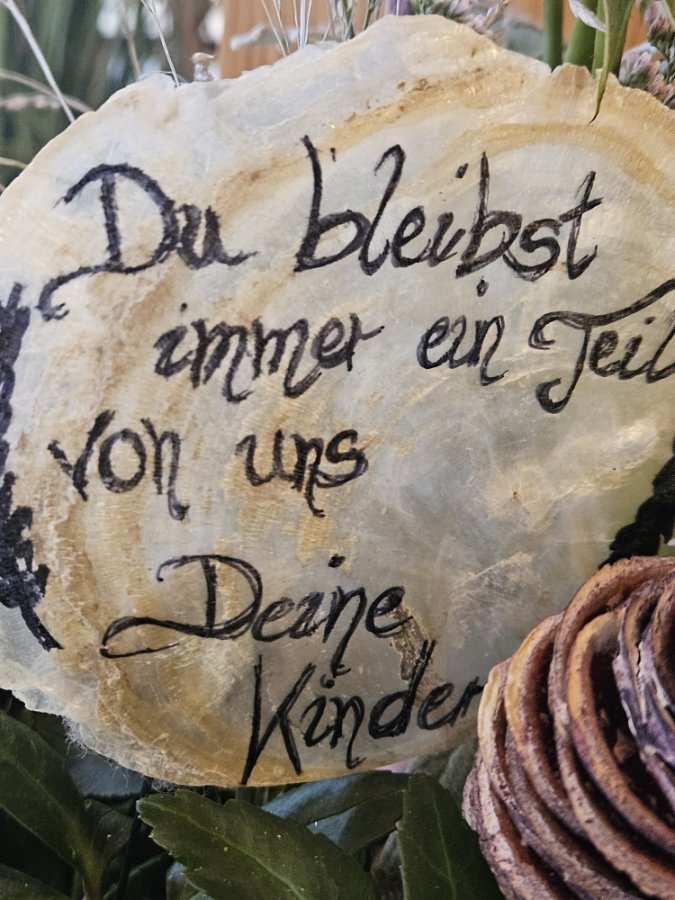 Du bleibst
immer ein Teil
von uns
Deine
Kinder